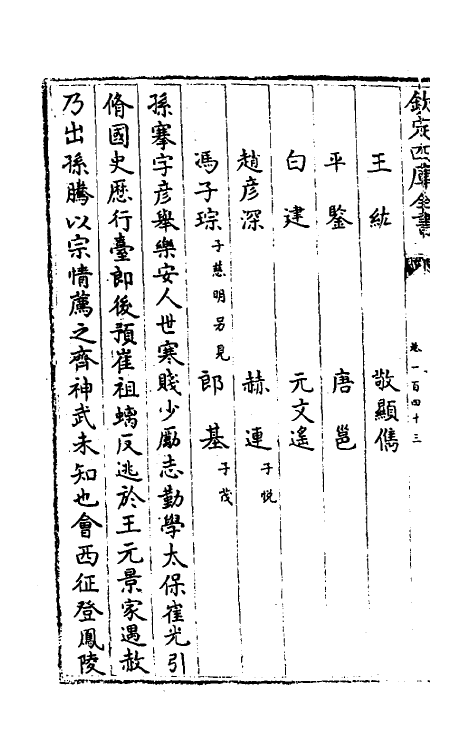 欽定四庫全書
卷一百四十三
王紘 敬顯儁
平鑒 唐邕
白建 元文遙
趙彥深 赫連子悅
馮子琮子慈明另見 郎基子茂
孫搴字彥舉樂安人世寒賤少勵志勤學太保崔光引
脩國史歷行臺郎後預崔祖螭反逃於王元景家遇赦
乃出孫騰以宗情薦之齊神武未知也會西征登鳳陵